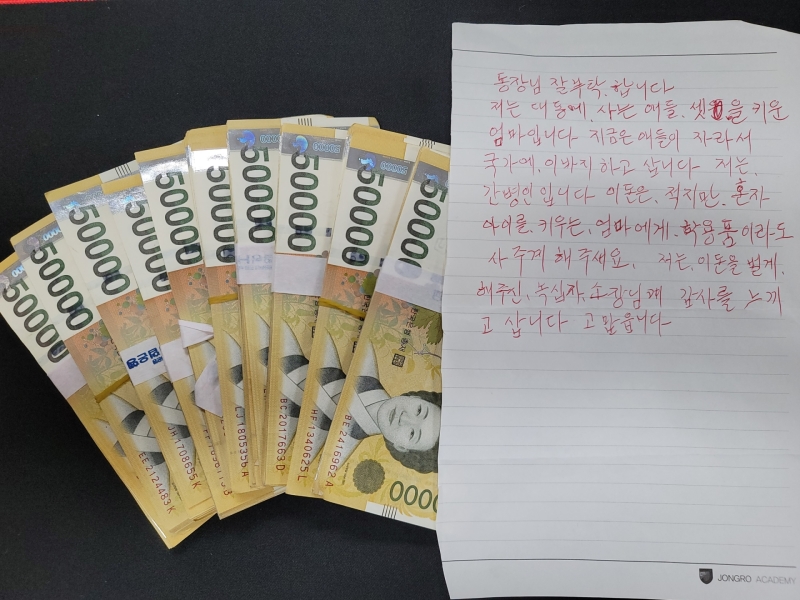 50000
50000
50000
50000
50000
50000
50000
50000
50000
EE 2124483 K
JH 1708655 K
EJ 1805356 A
BC 2017663 D
HF 1340625 L
BE 2416962 A
0000
동장님 잘 부탁. 합니다
저는 대동에. 사는 애들. 셋을 키운
엄마입니다 지금은 애들이 자라서
국가에. 이바지 하고 삽니다 저는.
간병인 입니다 이돈은. 적지만. 혼자
아이를. 키우는. 엄마에게. 학용품이라도
사주게 해주세요. 저는. 이돈을 벌게.
해주신. 녹십자. 소장님께 감사를 느끼
고 삽니다 고맙습니다
JONGRO ACADEMY